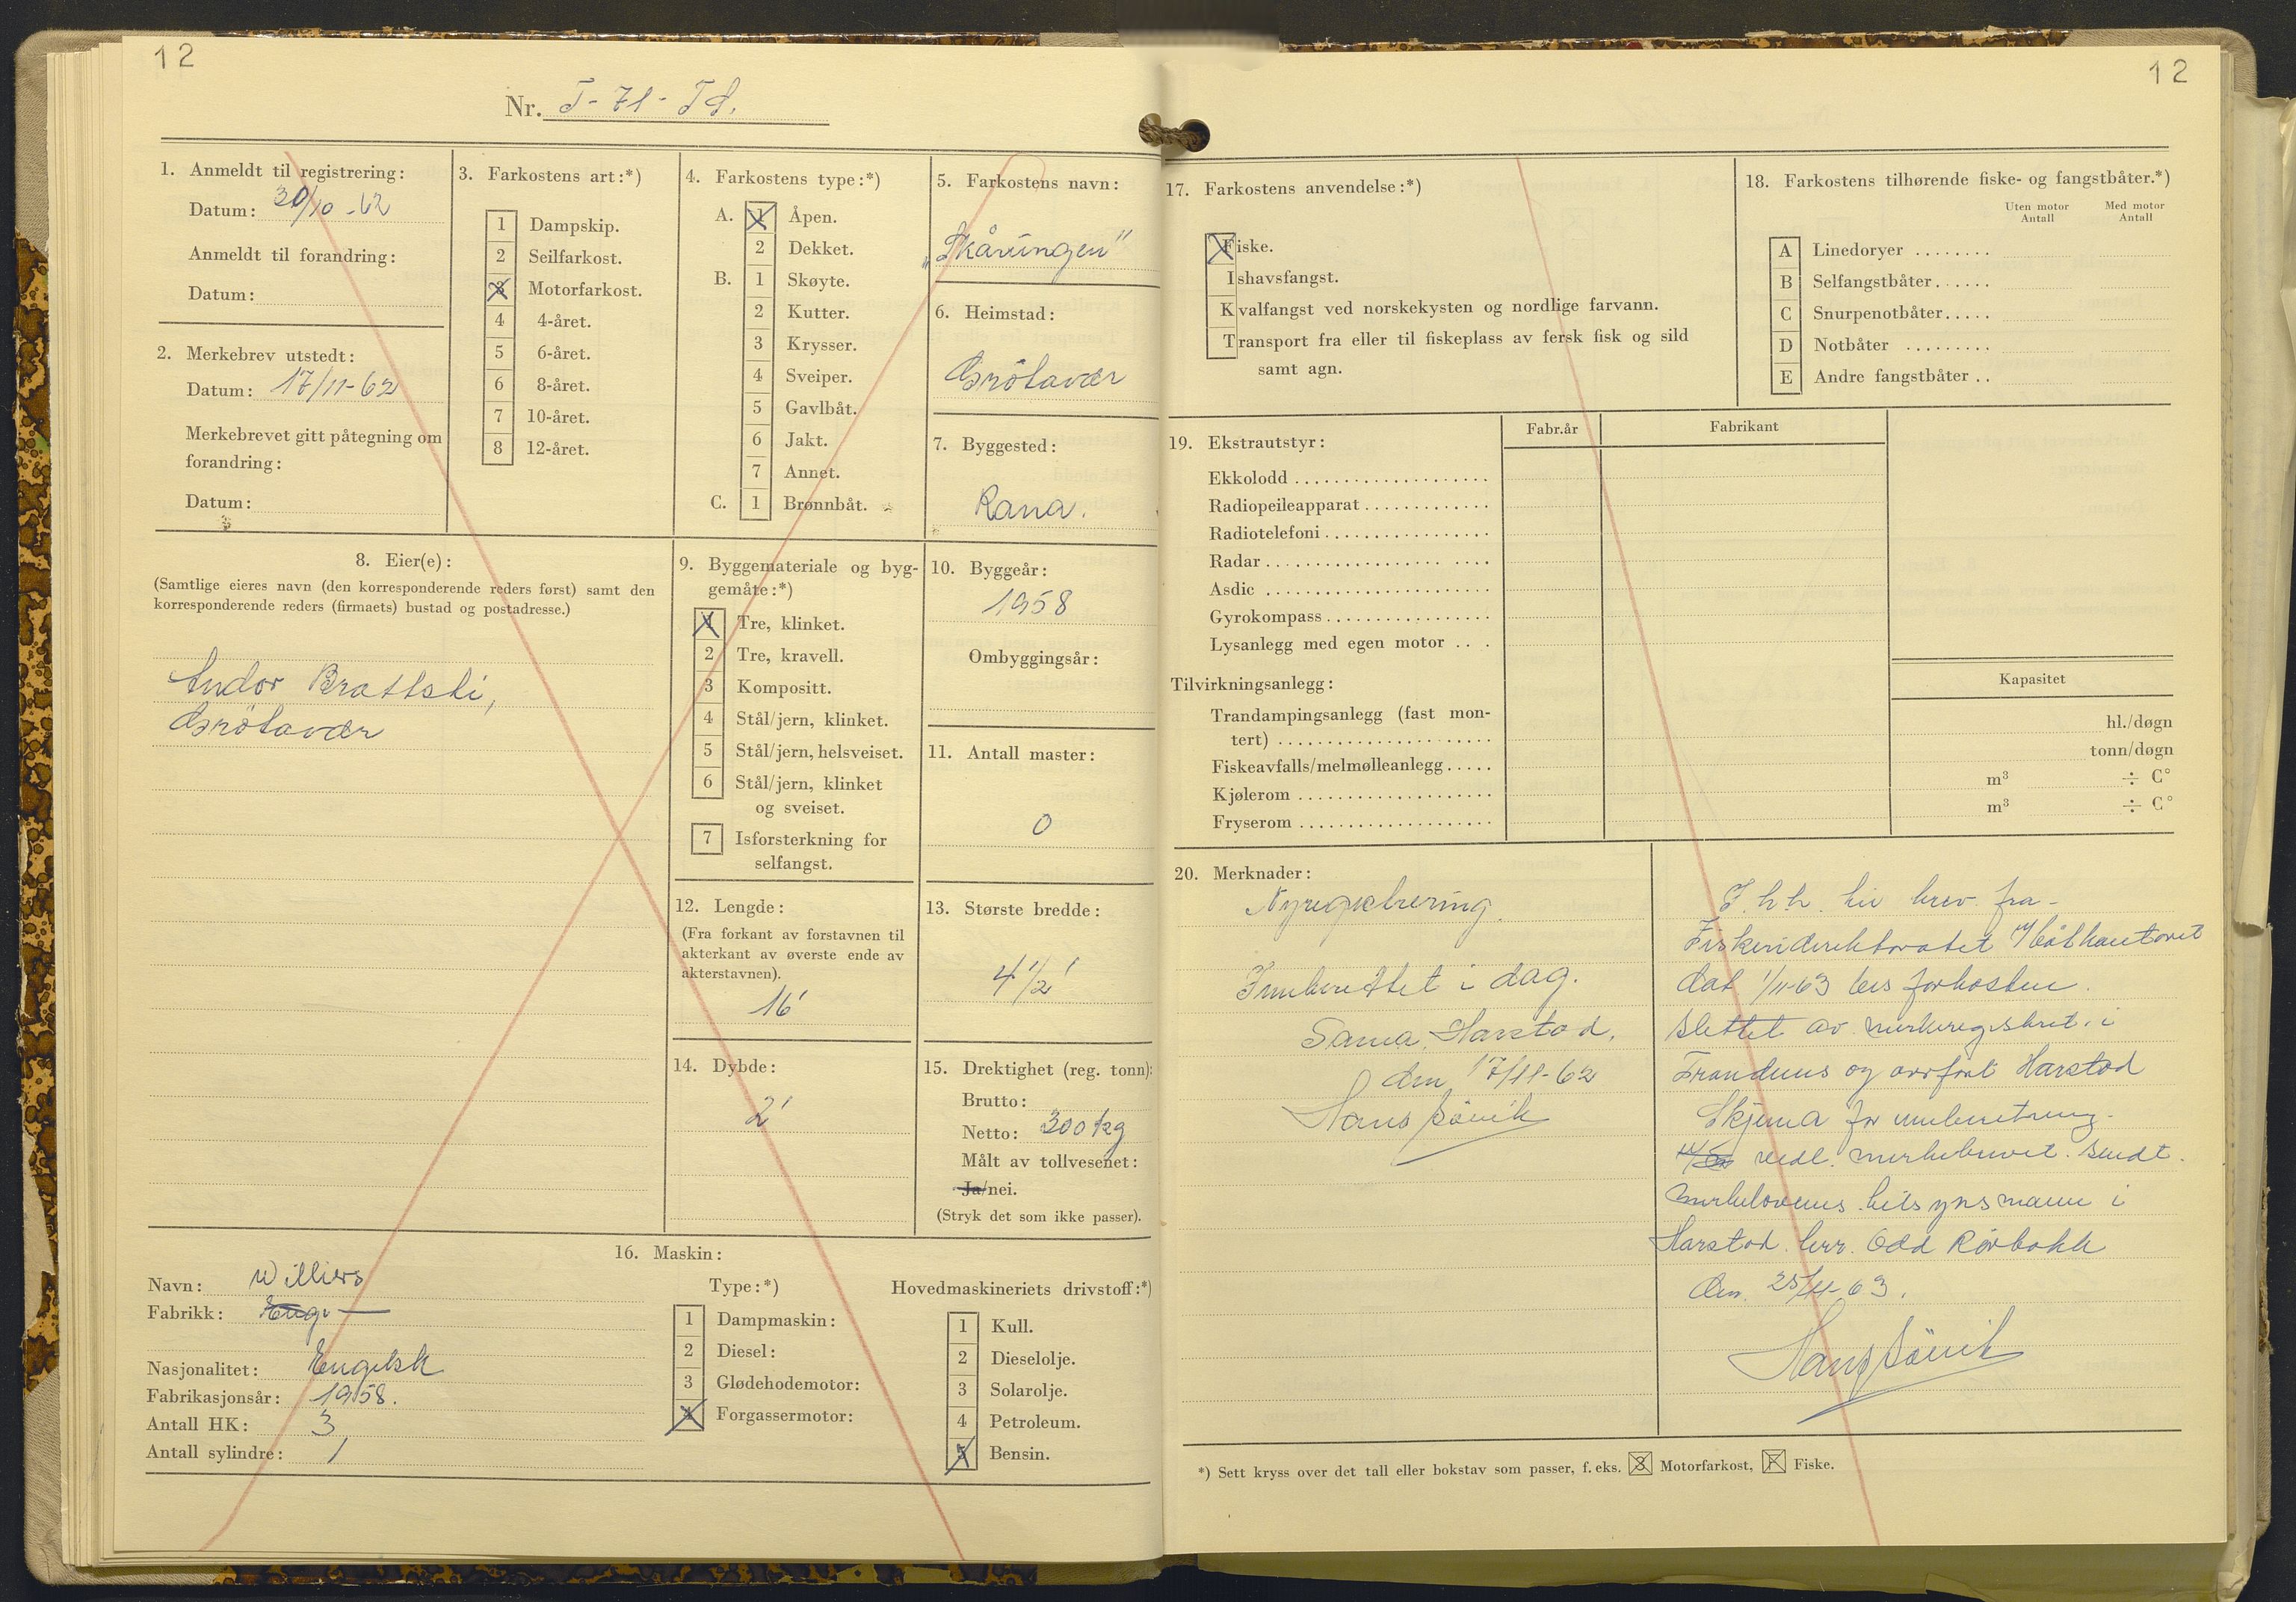 12
Nr. T-71-Td.
1. Anmeldt til registrering:
Datum: 30/10-62
Anmeldt til forandring:
Datum:
2. Merkebrev utstedt:
Datum: 17/11-62
Merkebrevet gitt påtegning om
forandring:
Datum:
3. Farkostens art:*)
1 Dampskip.
2 Seilfarkost.
3 Motorfarkost.
4 4-året.
5 6-året.
6 8-året.
7 10-året.
8 12-året.
4. Farkostens type:*)
A. 1 Åpen.
2 Dekket.
B. 1 Skøyte.
2 Kutter.
3 Krysser.
4 Sveiper.
5 Gavlbåt.
6 Jakt.
7 Annet.
C. 1 Brønnbåt.
5. Farkostens navn:
„Skåringen"
6. Heimstad:
Grötavær
7. Byggested:
Rana.
8. Eier(e):
(Samtlige eieres navn (den korresponderende reders først) samt den
korresponderende reders (firmaets) bustad og postadresse.)
Andor Brattski,
Grötavær
9. Byggemateriale og byg-
gemåte:*)
1 Tre, klinket.
2 Tre, kravell.
3 Kompositt.
4 Stål/jern, klinket.
5 Stål/jern, helsveiset.
6 Stål/jern, klinket
og sveiset.
7 Isforsterkning for
selfangst.
10. Byggeår:
1958
Ombyggingsår:
11. Antall master:
0
12. Lengde:
(Fra forkant av forstavnen til
akterkant av øverste ende av
akterstavnen).
16'
13. Største bredde:
4 1/2'
14. Dybde:
2'
15. Drektighet (reg. tonn):
Brutto:
Netto: 300 kg
Målt av tollvesenet:
Ja/nei.
(Stryk det som ikke passer).
16. Maskin:
Navn: Williers
Fabrikk: Eng.
Nasjonalitet: Engelsk
Fabrikasjonsår: 1958.
Antall HK: 3
Antall sylindre: 1
Type:*)
1 Dampmaskin:
2 Diesel:
3 Glødehodemotor:
4 Forgassermotor:
Hovedmaskineriets drivstoff:*)
1 Kull.
2 Dieselolje.
3 Solarolje.
4 Petroleum.
5 Bensin.
12
17. Farkostens anvendelse:*)
Fiske.
Ishavsfangst.
Kvalfangst ved norskekysten og nordlige farvann.
Transport fra eller til fiskeplass av fersk fisk og sild
samt agn.
18. Farkostens tilhørende fiske- og fangstbåter.*)
Uten motor Antall Med motor Antall
A Linedoryer ........
B Selfangstbåter......
C Snurpenotbåter.....
D Notbåter .........
E Andre fangstbåter ..
19. Ekstrautstyr:
Fabr.år Fabrikant
Ekkolodd ....................
Radiopeileapparat.............
Radiotelefoni.................
Radar......................
Asdic .......................
Gyrokompass.................
Lysanlegg med egen motor ...
Tilvirkningsanlegg:
Kapasitet
Trandampingsanlegg (fast mon-
tert) ...................... hl./døgn
Fiskeavfalls/melmølleanlegg..... tonn/døgn
Kjølerom .................... m³ ÷ C°
Fryserom .................... m³ ÷ C°
20. Merknader:
Nyregistrering.
Innberettet i dag.
Sama, Harstad,
den 17/11-62
Hans Sövik
T. h. h. til brev. fra
Fiskeridirektoratet
dat 1/11-63 bes farkosten
slettet av merkeregistret i
Trondenes og overført Harstad
Skjema for innberetning
vedl. merkebrevet. sendt
merkelovens tilsynsmann i
Harstad. herr. Odd Rørbakk
den. 25/11-63.
Hans Sövik
*) Sett kryss over det tall eller bokstav som passer, f. eks. 3 Motorfarkost, F Fiske.